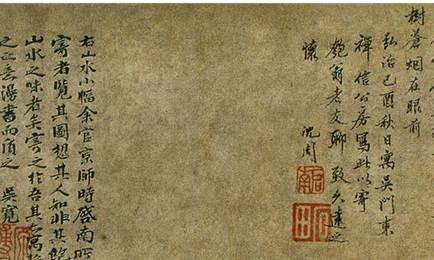 樹蒼烟在眼前
弘治己酉秋日寓吴門東
禅信公房寫此以寄
匏翁老友聊致久遠之
懷 沈周
右山水小幅余官京師時啓南所
寄者覽其圖想其人知非其飽
山水之味者矣寄之作吾其
漫書而 之 吳寬